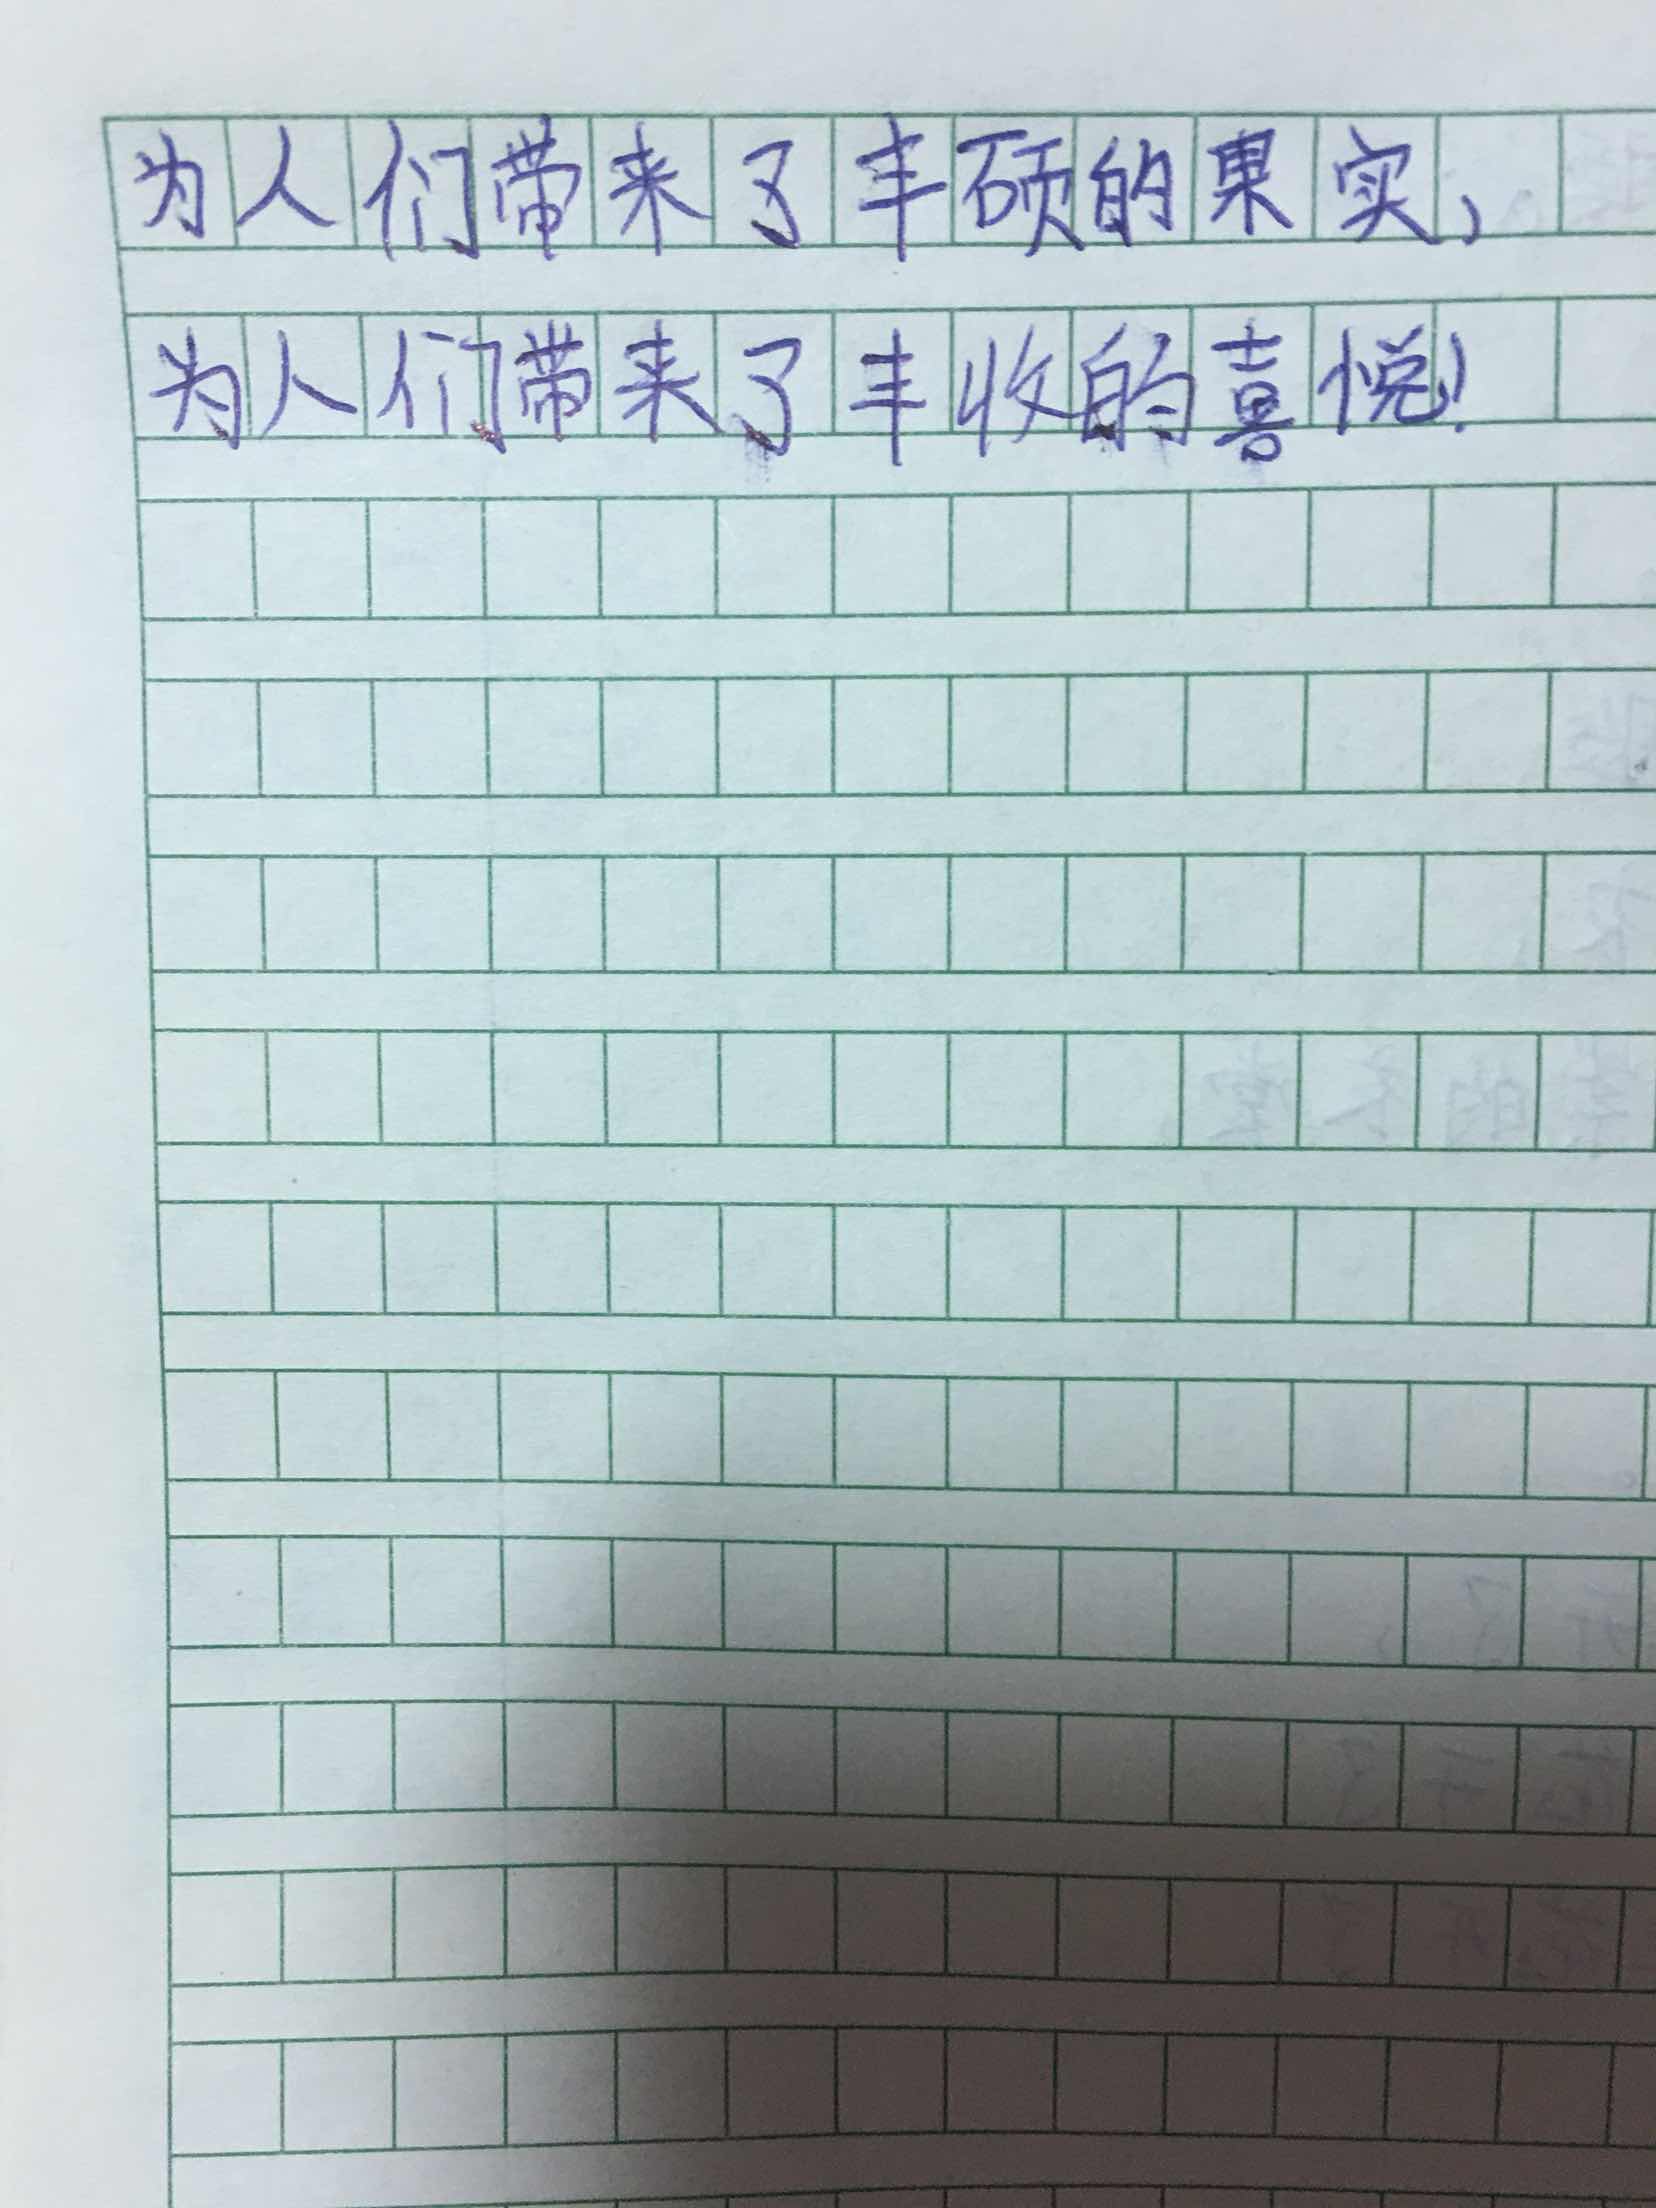 为人们带来了丰硕的果实，
为人们带来了丰收的喜悦！